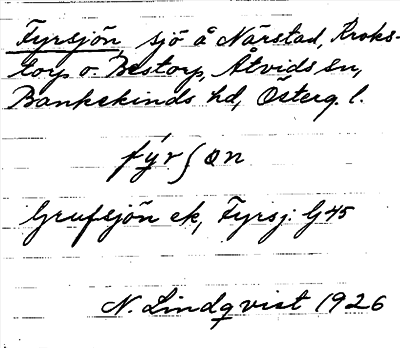 Fyrsjön, sjö å Närstad, Kroks-
torp o. Bestorp, Åtvids sn,
Bankekinds hd, Österg. l.
fýrʃɷn
Grufsjön ek, Fyrsj: G45
N. Lindqvist 1926